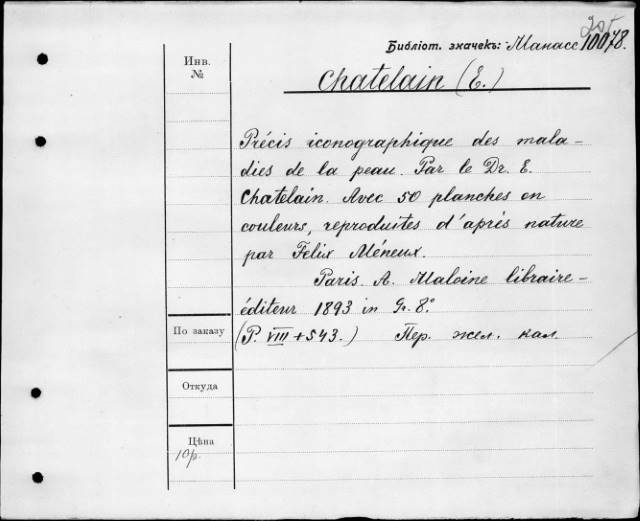 Библіот. значекъ: Манасс 10078.
Инв.
№
Chatelain (E.)
Précis iconographique des mala-
dies de la peau. Par le Dr. E.
Chatelain. Avec 50 planches en
couleurs, reproduites d'après nature
par Felix Méneux.
Paris. A. Maloine libraire-
éditeur 1893 in Gr. 8.°
По заказу
(P. VIII + 543.) Пер. жел. кал.
Откуда
Цѣна
10р.